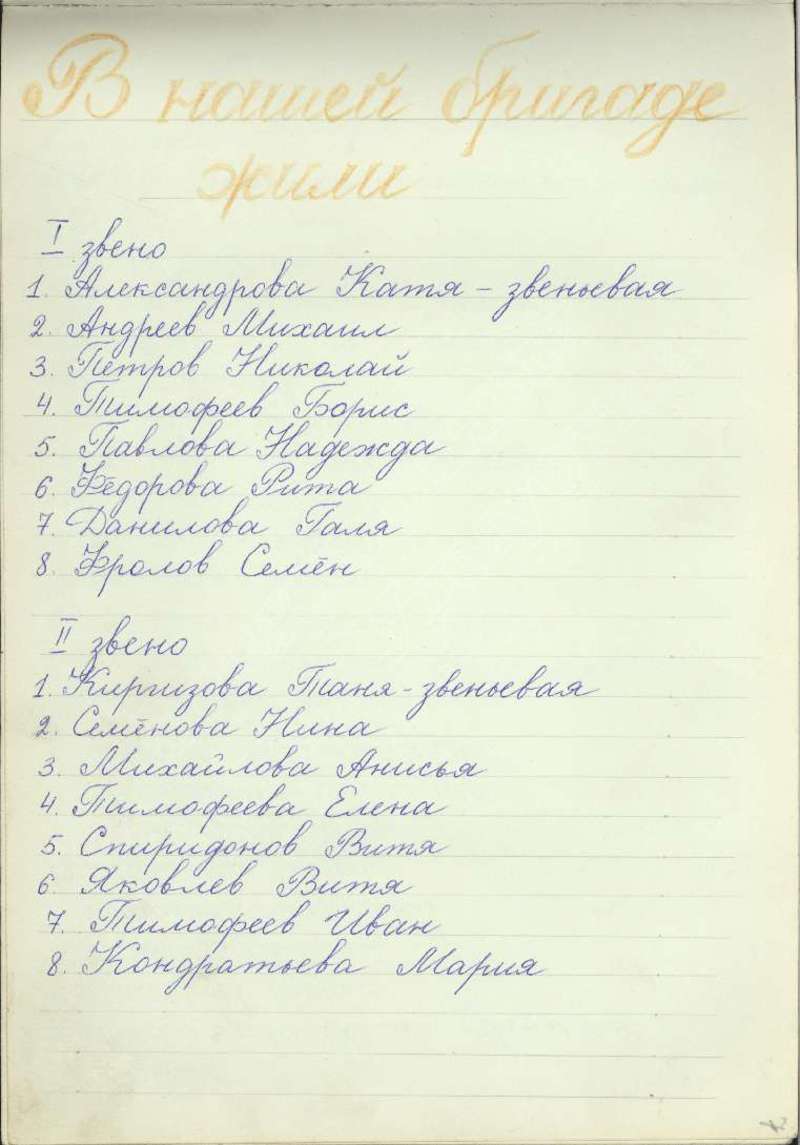 В нашей бригаде
жили
I звено
1. Александрова Катя - звеньевая
2. Андреев Михаил
3. Петров Николай
4. Тимофеев Борис
5. Павлова Надежда
6. Фёдорова Рита
7. Данилова Галя
8. Фролов Семён
II звено
1. Киргизова Таня - звеньевая
2. Семёнова Нина
3. Михайлова Анисья
4. Тимофеева Елена
5. Спиридонов Витя
6. Яковлев Витя
7. Тимофеев Иван
8. Кондратьева Мария